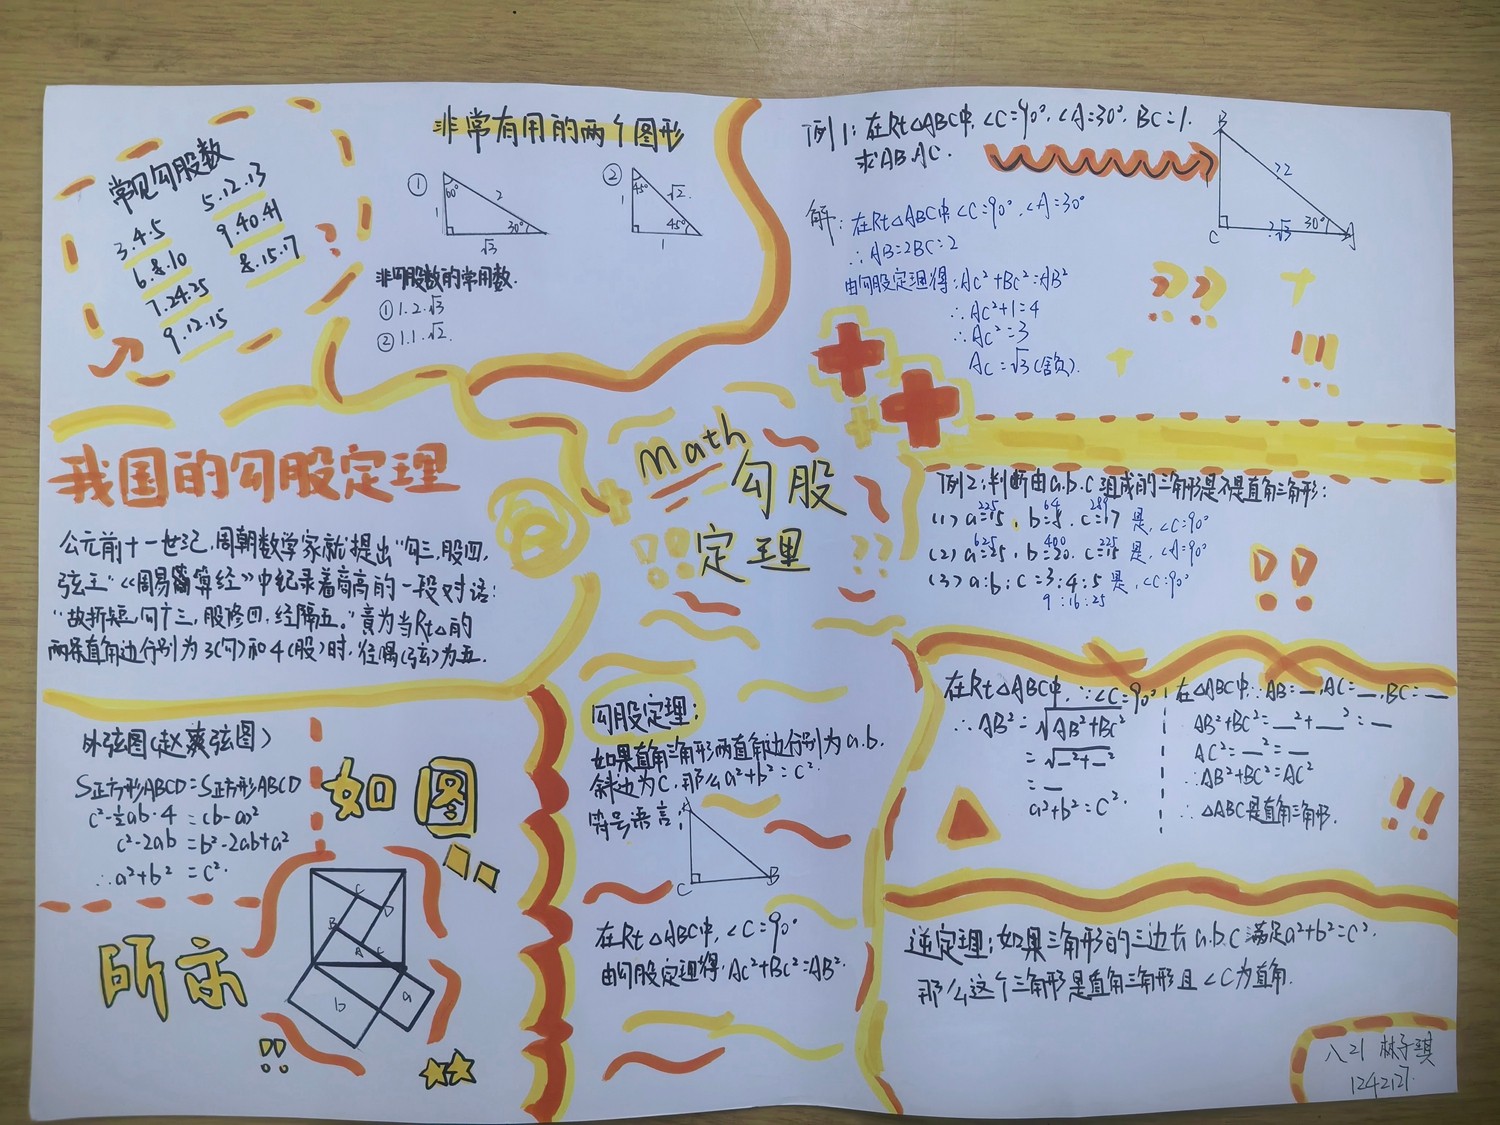 常见勾股数
3.4.5
5.12.13
6.8.10
9.40.41
7.24.25
8.15.17
9.12.15
非常有用的两个图形
①
60°
1
2
30°
√3
②
45°
1
√2
45°
1
非勾股数的常用数.
① 1.2.√3
② 1.1.√2.
例1:在Rt△ABC中,∠C=90°,∠A=30°,BC=1.
求AB.AC.
B
2
C
√3
30°
A
解:在Rt△ABC中,∠C=90°,∠A=30°
∴AB=2BC=2
由勾股定理得:AC²+BC²=AB²
∴AC²+1=4
∴AC²=3
AC=√3(舍负).
我国的勾股定理
公元前十一世纪,周朝数学家就提出"勾三,股四,
弦五"《周易算经》中纪录着商高的一段对话:
"故折短,勾广三,股修四,经隅五."意为当Rt△的
两条直角边分别为3(勾)和4(股)时,径隅(弦)为五.
Math
勾股
定理
例2:判断由a.b.c组成的三角形是不是直角三角形:
225 64 289
(1) a=15, b=8, c=17 是,∠C=90°
625 400 225
(2) a=25, b=20, c=15 是,∠A=90°
(3) a:b:c=3:4:5 是,∠C=90°
9:16:25
外弦图(赵爽弦图)
S正方形ABCD=S正方形ABCD
c²-½ab·4 =(b-a)²
c²-2ab =b²-2ab+a²
∴a²+b² =c².
如图
所示
C
D
B
A
c
b
a
勾股定理:
如果直角三角形两直角边分别为a.b.
斜边为c,那么a²+b²=c².
符号语言:
A
C
B
在Rt△ABC中,∠C=90°
由勾股定理得:AC²+BC²=AB².
在Rt△ABC中,∵∠C=90°
∴AB²=√AB²+BC²
=√_²+_²
=_
a²+b²=c².
在△ABC中∵AB=_,AC=_,BC=_
AB²+BC²=_²+_²=_
AC²=_²=_
∴AB²+BC²=AC²
∴△ABC是直角三角形.
逆定理:如果三角形的三边长a.b.c满足a²+b²=c².
那么这个三角形是直角三角形且∠C为直角.
八21 林子琪
1242127.